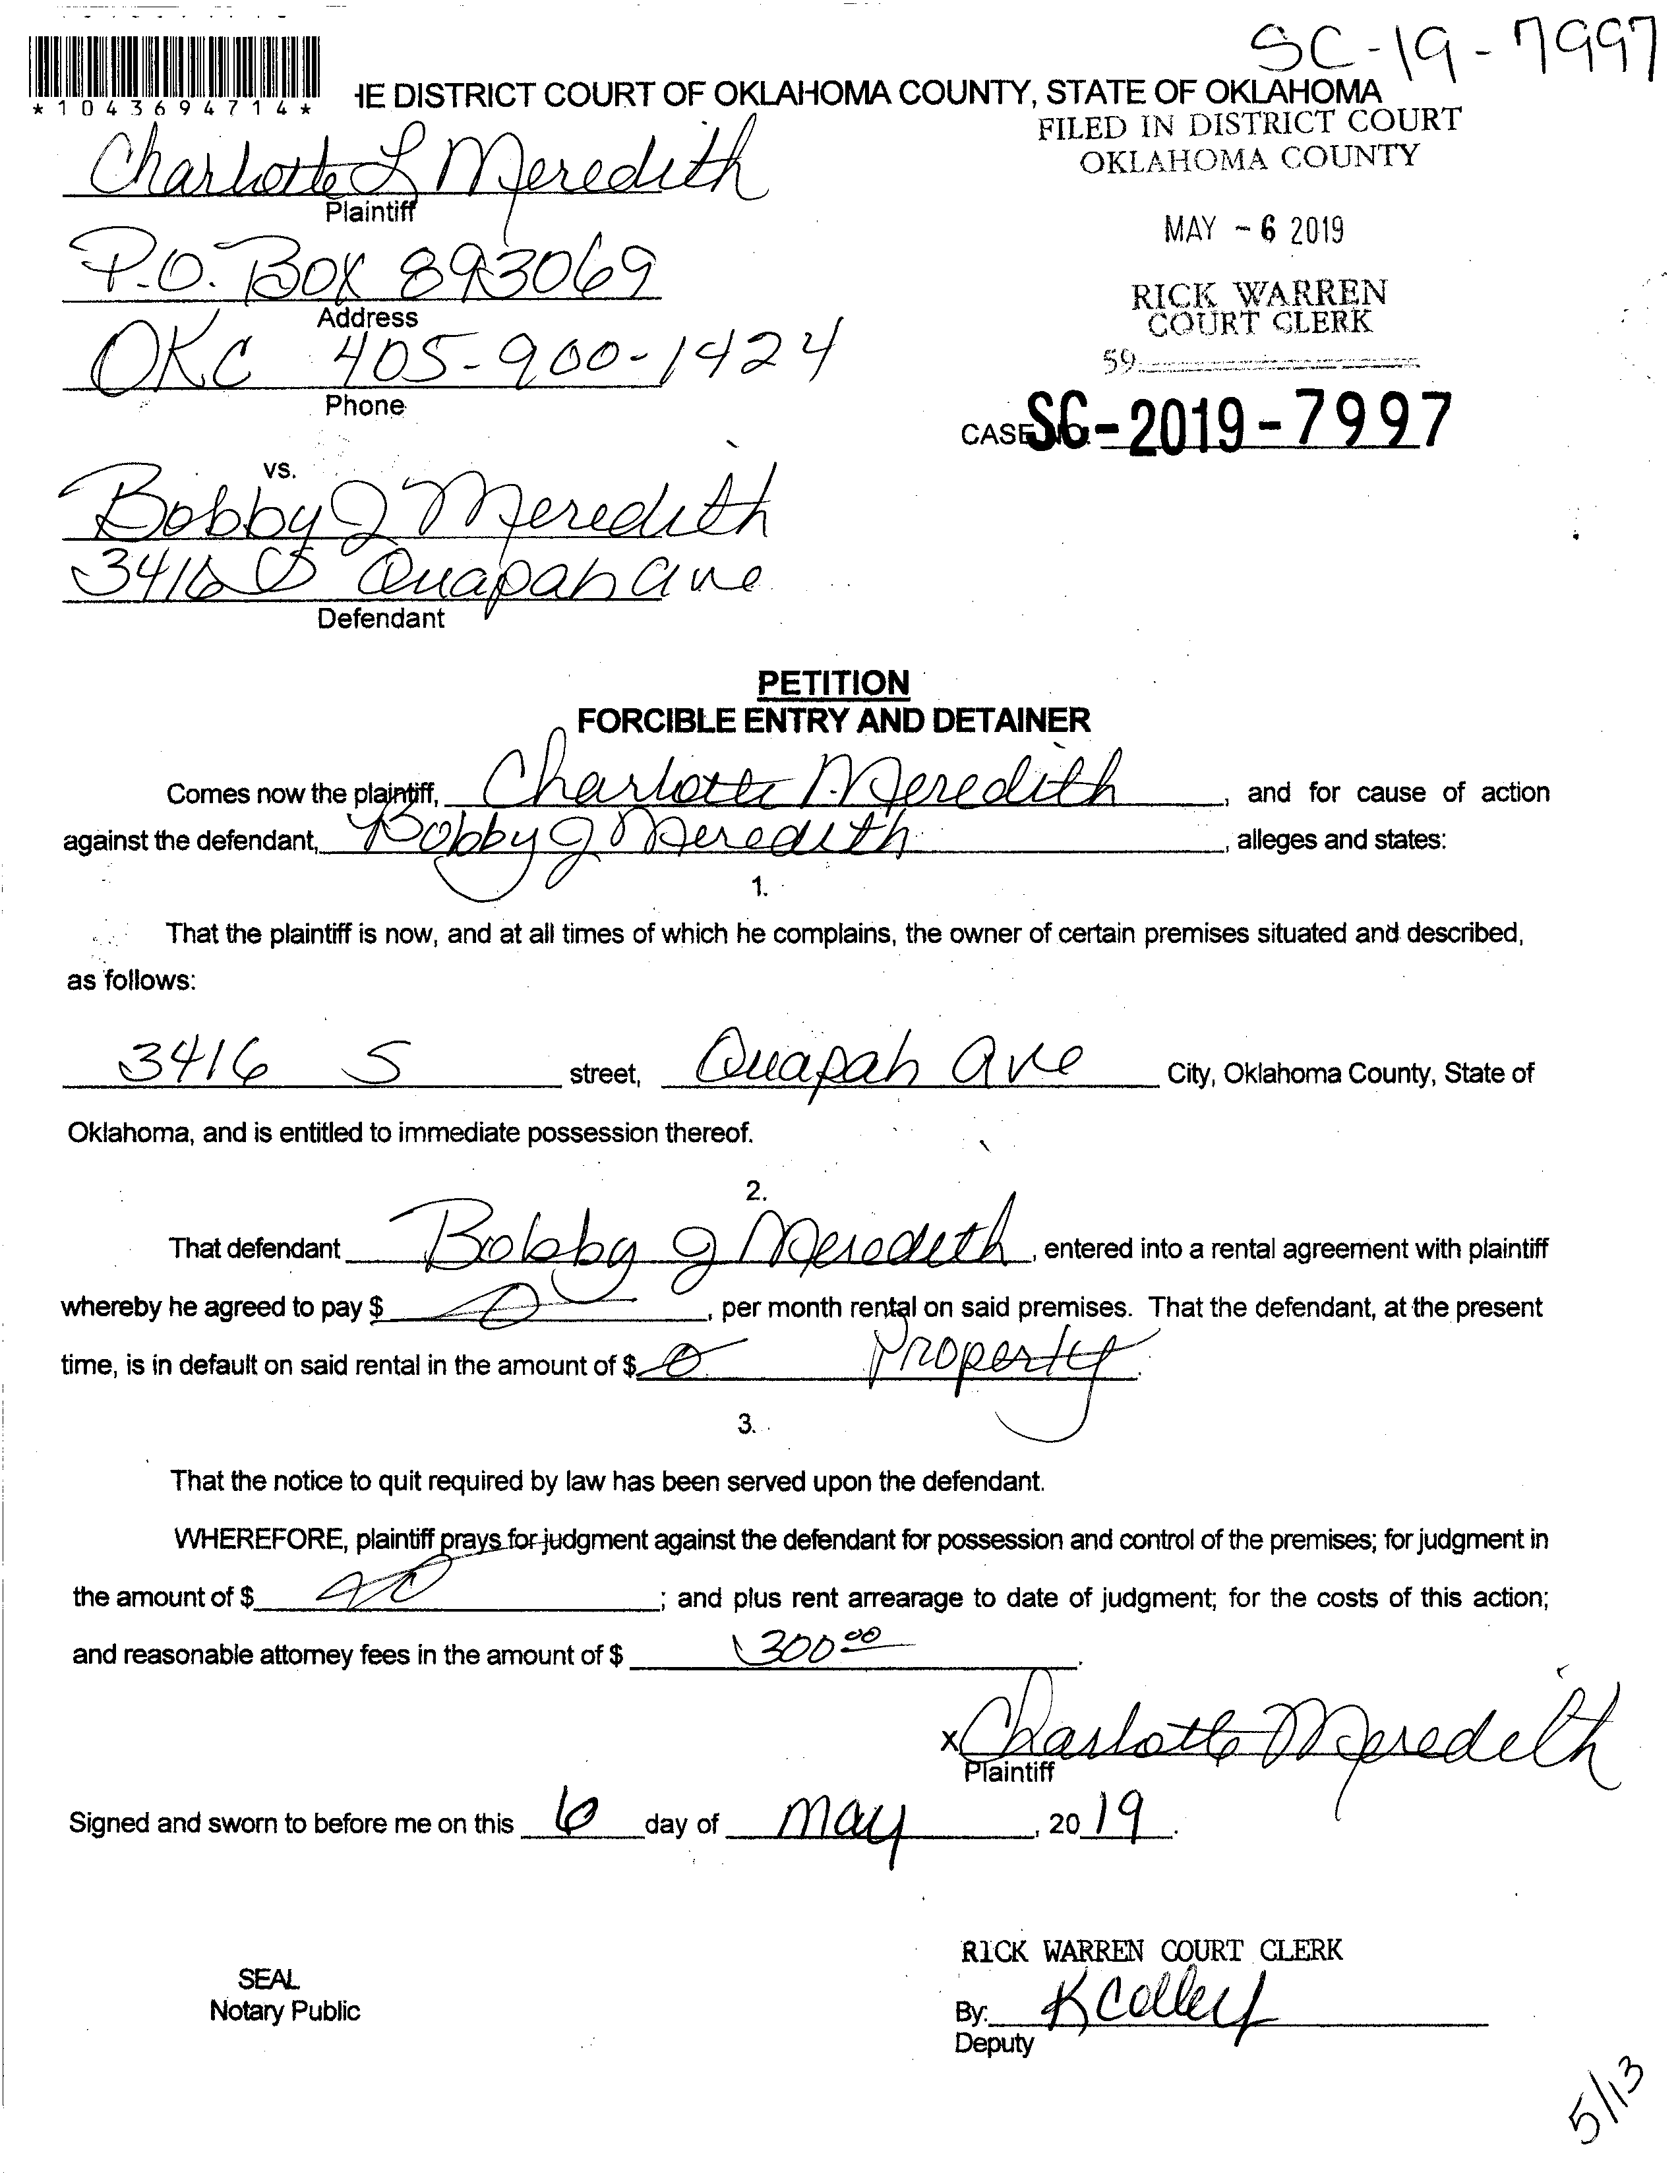 SC-19-7997
*1043694714*
IE DISTRICT COURT OF OKLAHOMA COUNTY, STATE OF OKLAHOMA
FILED IN DISTRICT COURT
OKLAHOMA COUNTY
Charlotte L Meredith
Plaintiff
MAY - 6 2019
P.O. Box 893069
Address
RICK WARREN
COURT CLERK
OKC 405-900-1424
Phone
59
CASE SC-2019-7997
vs.
Bobby J Meredith
3416 S Quapah Ave
Defendant
PETITION
FORCIBLE ENTRY AND DETAINER
Comes now the plaintiff, Charlotte Meredith, and for cause of action
against the defendant, Bobby J Meredith, alleges and states:
1.
That the plaintiff is now, and at all times of which he complains, the owner of certain premises situated and described,
as follows:
3416 S street, Quapah Ave City, Oklahoma County, State of
Oklahoma, and is entitled to immediate possession thereof.
2.
That defendant Bobby J Meredith, entered into a rental agreement with plaintiff
whereby he agreed to pay $ 0, per month rental on said premises. That the defendant, at the present
time, is in default on said rental in the amount of $ 0 Property.
3.
That the notice to quit required by law has been served upon the defendant.
WHEREFORE, plaintiff prays for judgment against the defendant for possession and control of the premises; for judgment in
the amount of $ ; and plus rent arrearage to date of judgment; for the costs of this action;
and reasonable attorney fees in the amount of $ 300.00.
x Charlotte Meredith
Plaintiff
Signed and sworn to before me on this 6 day of May, 2019.
RICK WARREN COURT CLERK
SEAL
Notary Public
By: K Colley
Deputy
5/13